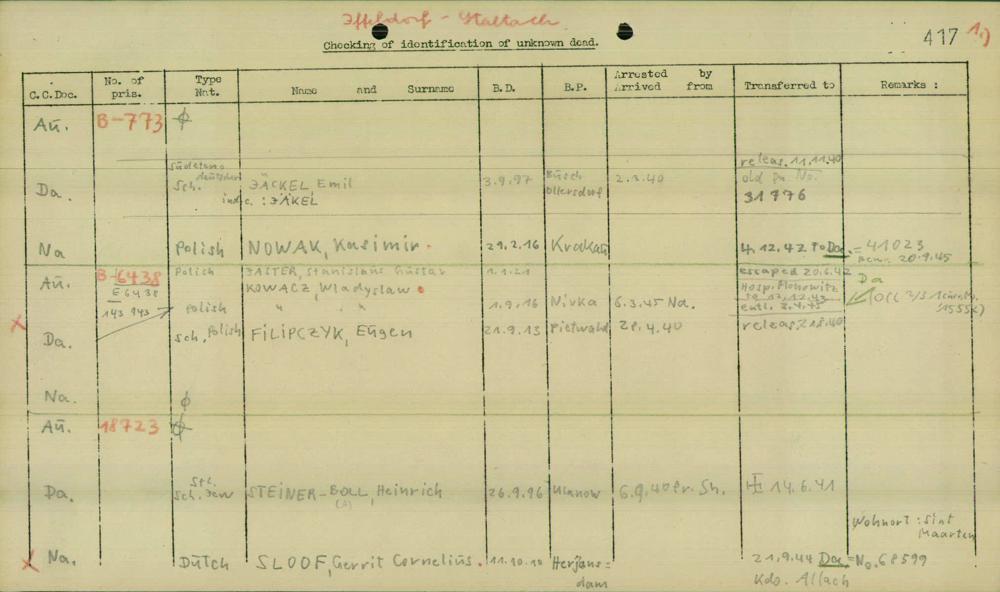 Iffeldorf - Staltach
Checking of identification of unknown dead.
417 1.)
C.C.Doc. No. of pris. Type Nat. Name and Surname B.D. B.P. Arrested by Arrived from Transferred to Remarks :
Au. B-773 ϕ
releas. 11.11.40
Sudetendeutscher
Da. Sch. JÄCKEL Emil 3.9.97 Büsch Ollersdorf 2.3.40 old pr. No.
ind. c. : JÄKEL 31776
Na Polish NOWAK, Kasimir. 29.2.16 Krakau 4.12.42 to Da. = 41023
20.9.45
Au. B-6438 Polish JASTER, Stanislaus Gustav 1.1.21 escaped 20.6.42 Da
E 6438 KOWACZ, Wladyslaw Hosp. Monowitz
143 943 Polish " " " 1.9.16 Nivka 6.3.45 Na. entl.
x Da. Sch. Polish FILIPCZYK, Eugen 21.9.13 Pietwald 28.4.40 releas.
Na. ϕ
Au. 18723 ϕ
Da. Sch. Jew STEINER-BOLL, Heinrich 26.9.96 Ulanow 6.9.40 fr. Sh. 14.6.41
Wohnort : Sint Maarten
x Na. Dutch SLOOF, Gerrit Cornelius. 11.10.10 Herjansdam 21.9.44 Da = No. 68599
Kdo. Allach